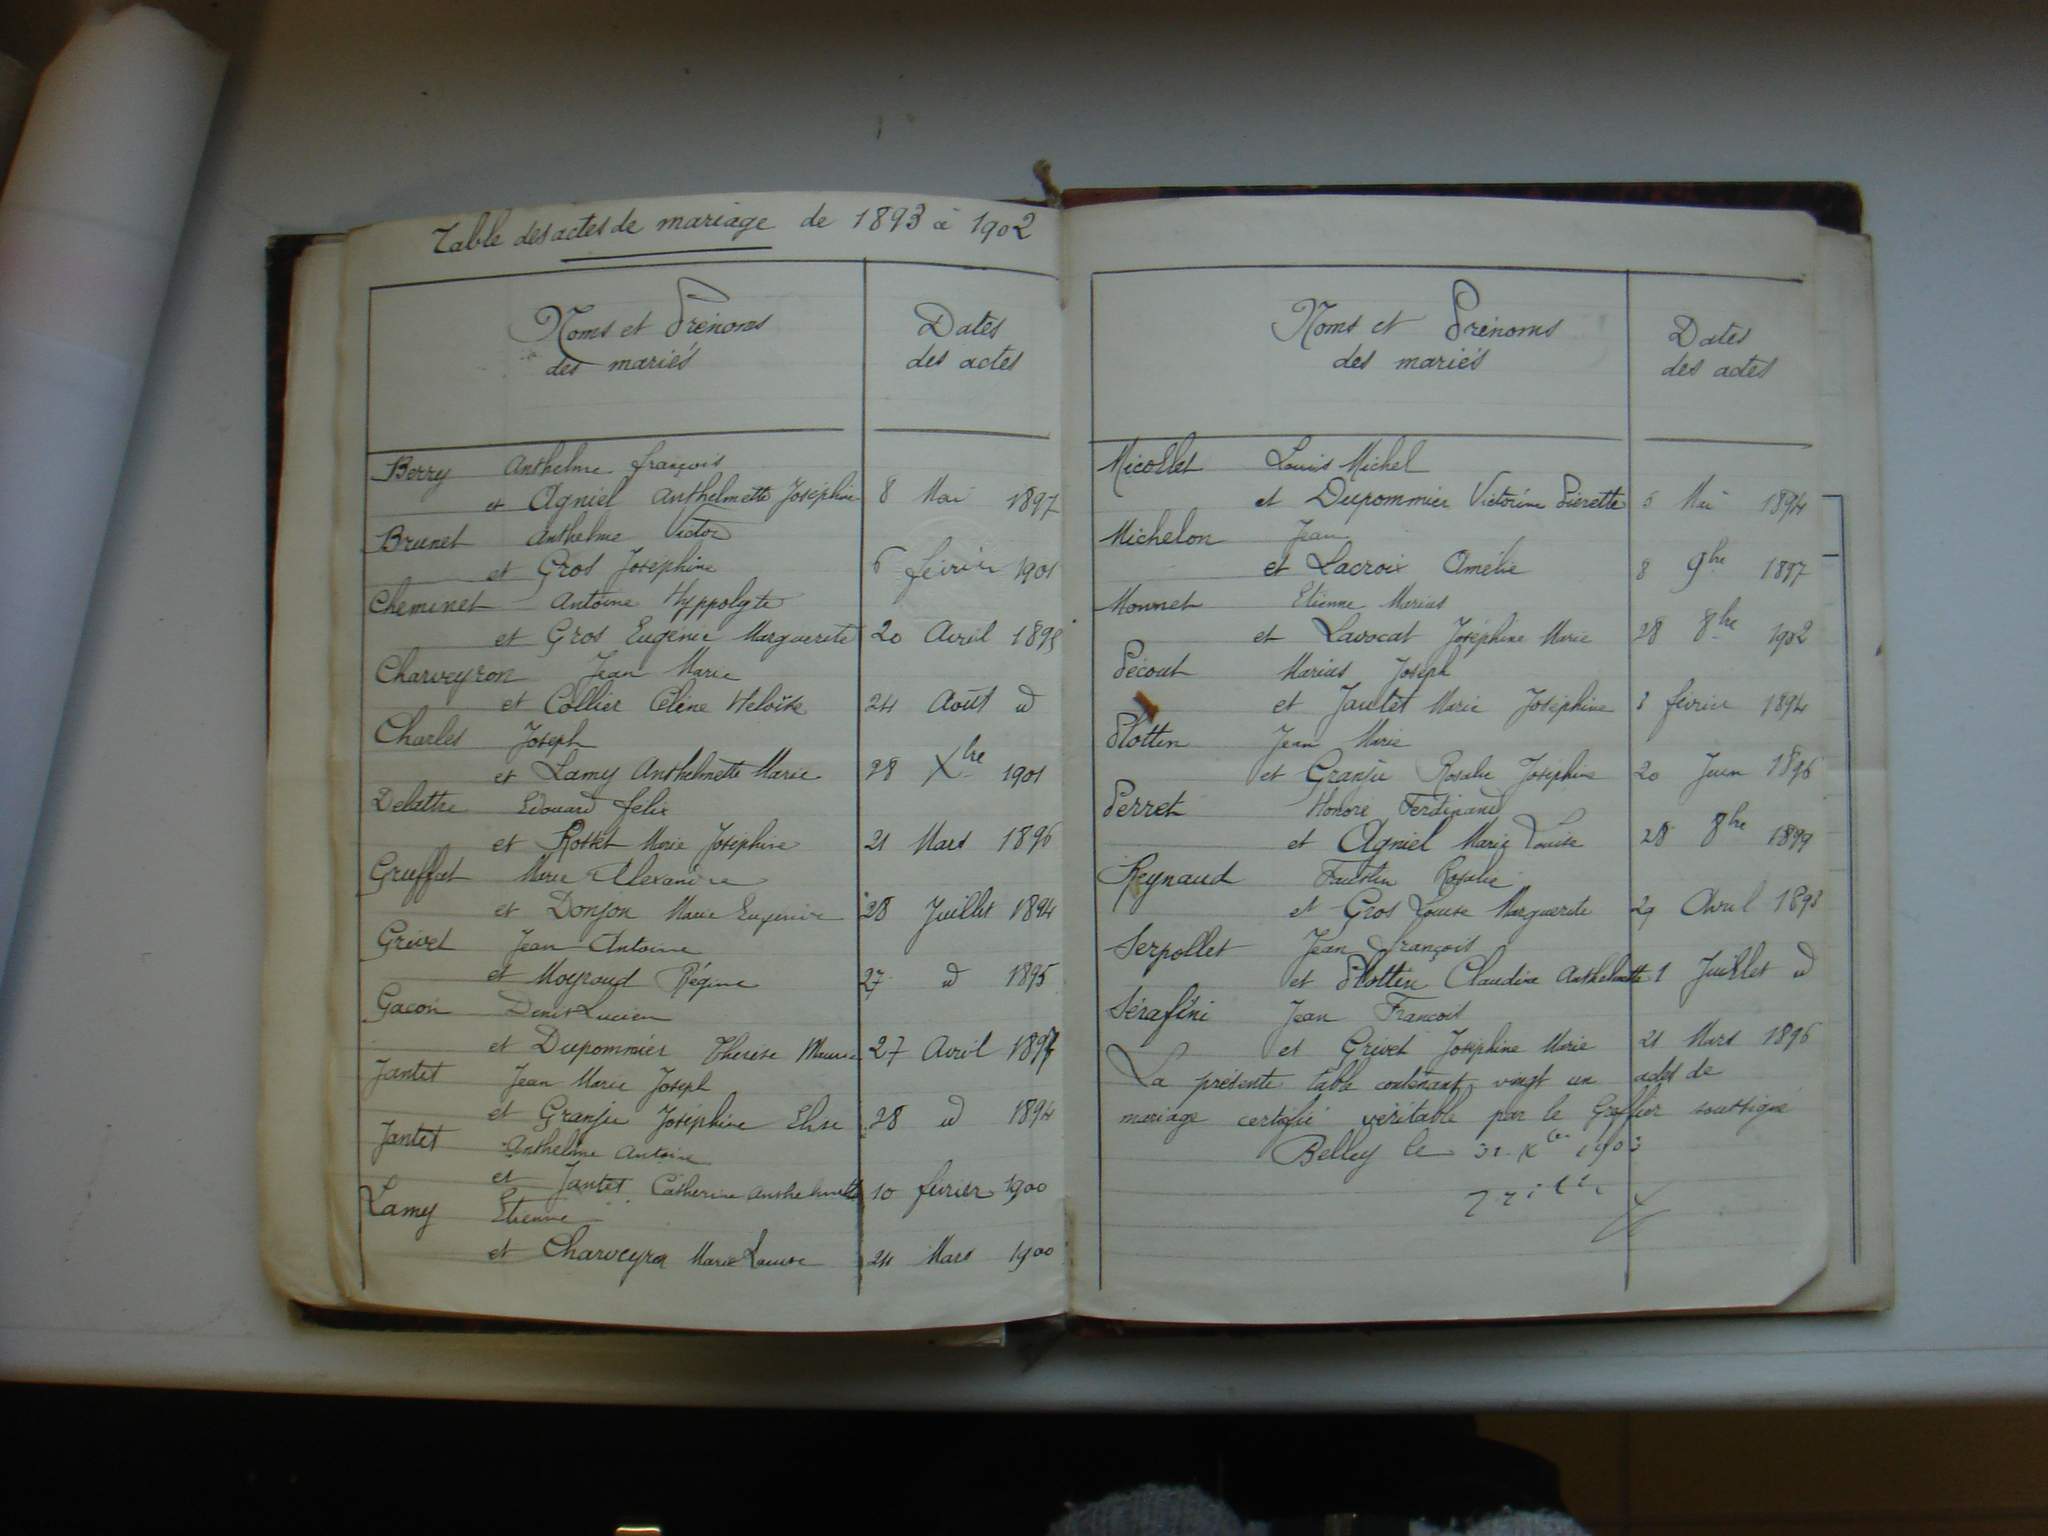 Table des actes de mariage de 1893 à 1902
Noms et Prénoms
des mariés
Dates
des actes
Berry Anthelme françois
et Agniel Anthelmette Joséphine 8 Mai 1897
Brunet Anthelme Victor
et Gros Joséphine 6 février 1901
Cheminet Antoine Hyppolyte
et Gros Eugénie Marguerite 20 Avril
Charveyron Jean Marie
et Collier Célène Héloïse 24 Août d
Charles Joseph
et Lamy Anthelmette Marie 28 Xbre 1901
Delattre Edouard félix
et Rosset Marie Joséphine 21 Mars 1896
Gruffat Marie Alexandre
et Donjon Marie Eugénie 28 Juillet 1894
Grivet Jean Antoine
et Moyroud Régine 27 d 1895
Gacon Denis Lucien
et Dupommier Thérèse 27 Avril
Jantet Jean Marie Joseph
et Granju Joséphine Elise 28 d 1894
Jantet Anthelme Antoine
et Jantet Catherine Anthelmette 10 février 1900
Lamy Etienne
et Charveyron Marie Louise 24 Mars 1900
Noms et Prénoms
des mariés
Dates
des actes
Micollet Louis Michel
et Dupommier Victorine Pierette Mai 1894
Michelon Jean
et Lacroix Amélie 8 9bre 1897
Monnet Etienne Marius
et Lavocat Joséphine Marie 28 8bre 1902
Pécout Marius Joseph
et Jantet Marie Joséphine février 1894
Plottin Jean Marie
et Granju Rosalie Joséphine 20 Juin 1896
Perret Honoré Ferdinand
et Agniel Marie Louise 28 8bre 1899
Reynaud Faustin Rosalie
et Gros Louise Marguerite 29 Avril 1893
Serpollet Jean françois
et Plottin Claudine Anthelmette 1 Juillet d
Sérafini Jean François
et Grivet Joséphine Marie 21 Mars 1896
La présente table contenant vingt un actes de
mariage certifié véritable par le Greffier soussigné
Belley le 31 Xbre 1903